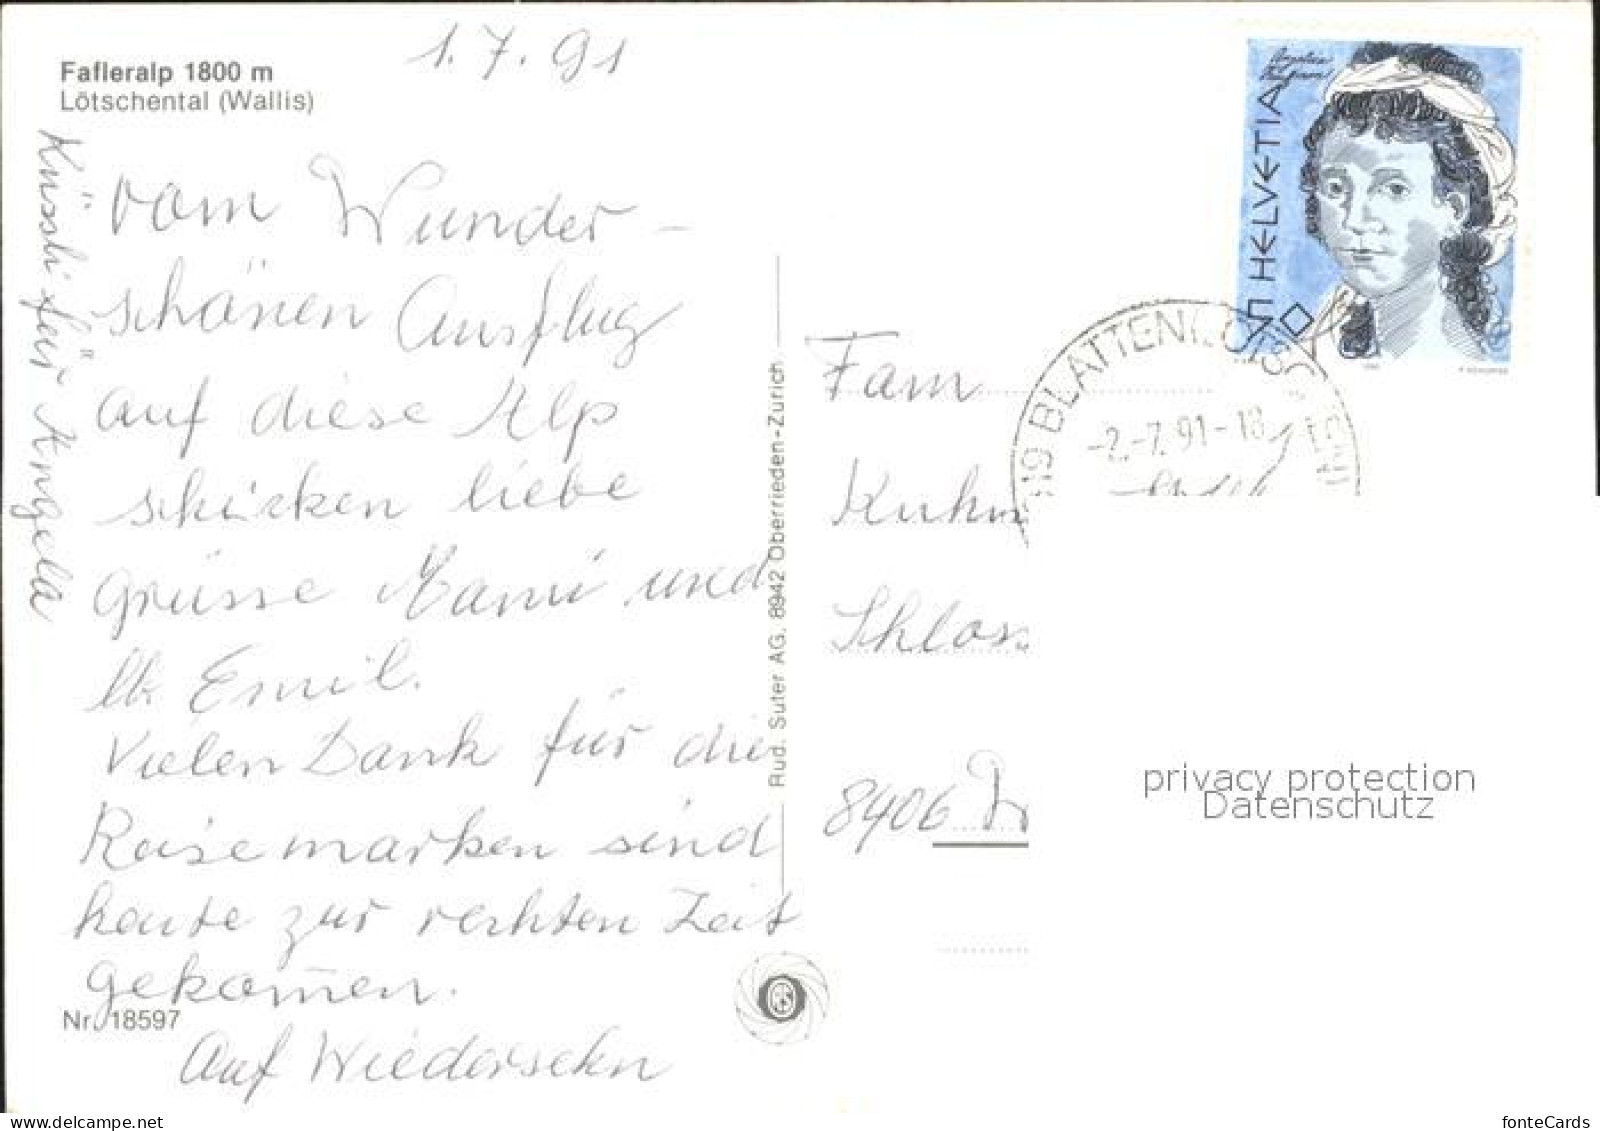 1.7.91
Fafleralp 1800 m
Lötschental (Wallis)
Küssli für Angela
vom Wunder-
schönen Ausflug
auf diese Alp
schicken liebe
Grüsse Mami und
lb. Emil.
Vielen Dank für die
Reisemarken sind
heute zur rechten Zeit
gekom̄en.
Auf Wiedersehn
Nr. 18597
Rud. Suter AG, 8942 Oberrieden-Zürich
HELVETIA
80
Angelica
BLATTEN
-2.-7.91-18
Fam
Kuhn
Schloss
8406 W
privacy protection
Datenschutz
fonteCards
delcampe.net